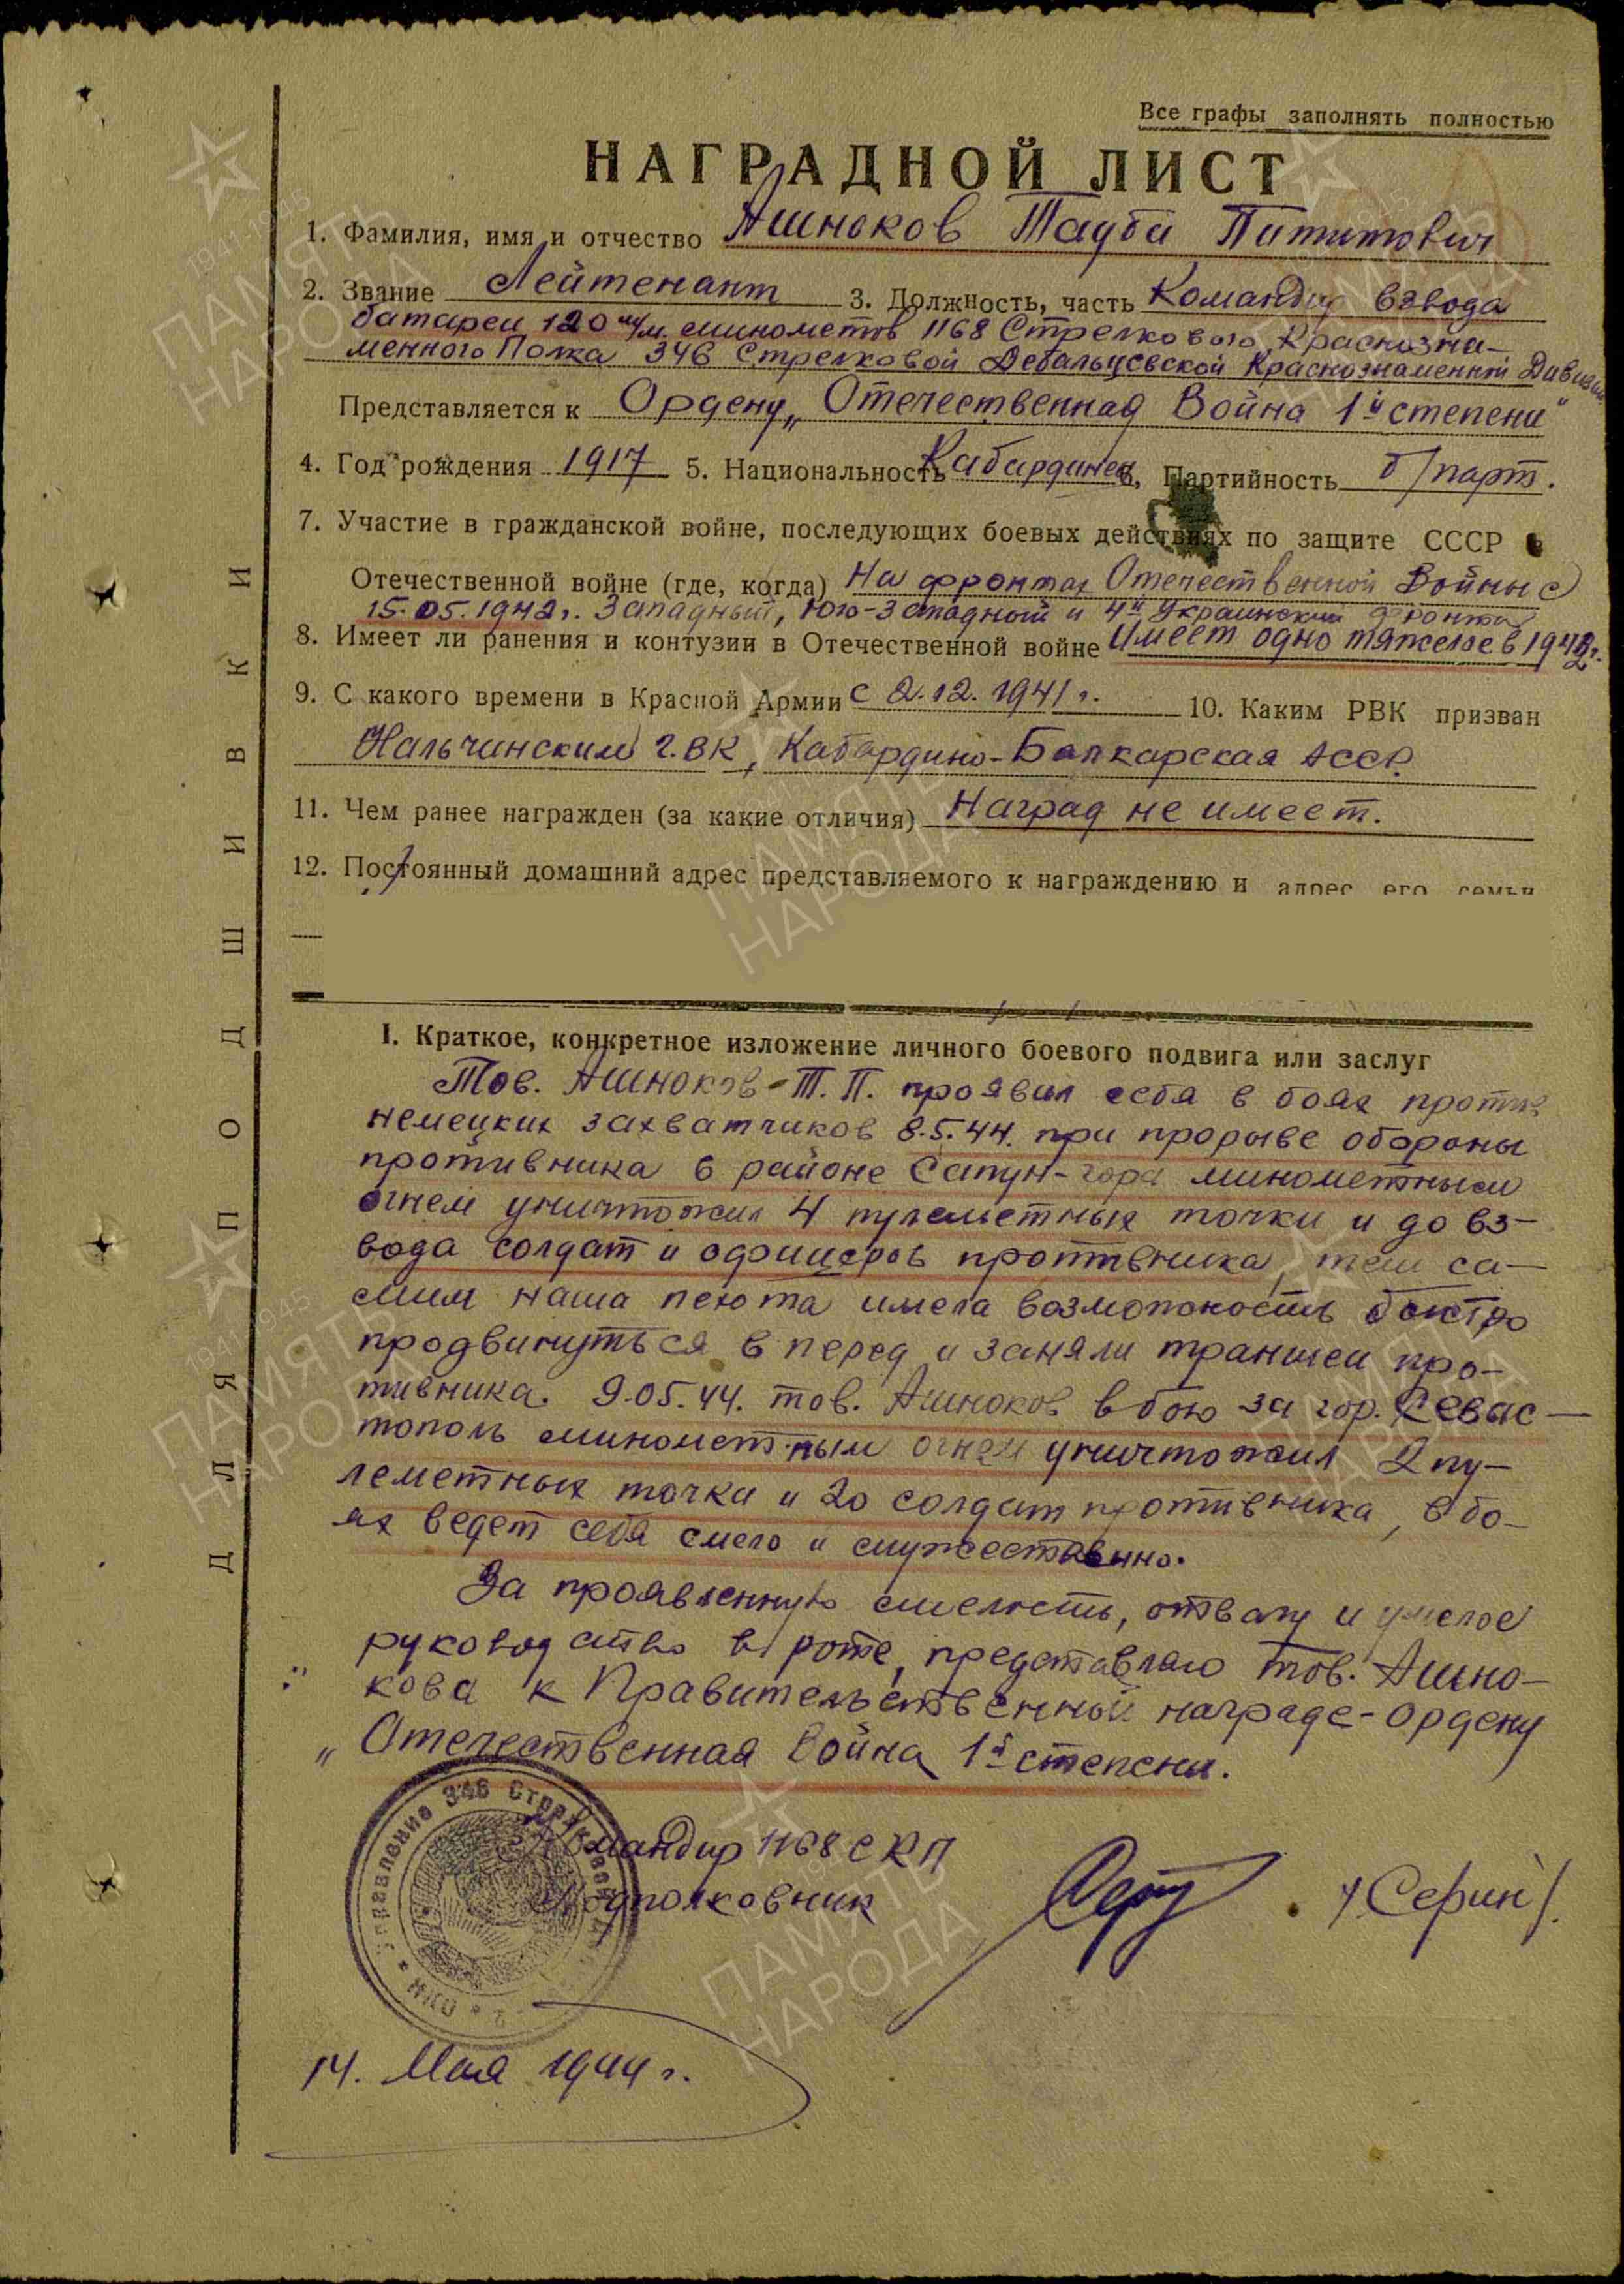 Все графы заполнять полностью
НАГРАДНОЙ ЛИСТ
1. Фамилия, имя и отчество Ашноков Тауби Патитович
2. Звание Лейтенант 3. Должность, часть Командир взвода
батареи 120 м/м минометов 1168 Стрелкового Краснозна-
менного Полка 346 Стрелковой Дебальцевской Краснознаменной Дивизии
Представляется к Ордену „Отечественная Война 1й степени"
4. Год рождения 1917 5. Национальность Кабардинец 6, Партийность б/парт.
7. Участие в гражданской войне, последующих боевых действиях по защите СССР в
Отечественной войне (где, когда) На фронтах Отечественной Войны с
15.05.1942г. Западный, Юго-Западный и 4й Украинский фронта
8. Имеет ли ранения и контузии в Отечественной войне Имеет одно тяжелое в 1942г.
9. С какого времени в Красной Армии с 2.12.1941г. 10. Каким РВК призван
Нальчинским Г.ВК, Кабардино-Балкарская АССР.
11. Чем ранее награжден (за какие отличия) Наград не имеет.
12. Постоянный домашний адрес представляемого к награждению и адрес его семьи
I. Краткое, конкретное изложение личного боевого подвига или заслуг
Тов. Ашноков-Т.П. проявил себя в боях против
немецких захватчиков 8.5.44. при прорыве обороны
противника в районе Сапун-гора минометным
огнем уничтожил 4 пулеметных точки и до вз-
вода солдат и офицеров противника, тем са-
мим наша пехота имела возможность быстро
продвинуться в перед и заняли траншеи про-
тивника. 9.05.44. тов. Ашноков в бою за гор. Севас-
тополь минометным огнем уничтожил 2 пу-
леметных точки и 20 солдат противника, в бо-
ях ведет себя смело и мужественно.
За проявленную смелость, отвагу и умелое
руководство в роте, представляю тов. Ашно-
кова к Правительственный награде-ордену
„Отечественная война 1й степени.
Командир 1168 СКП
Подполковник /Серин/.
Управление 346 Стрелковой
НКО
14. Мая 1944 г.
ДЛЯ ПОДШИВКИ
1941-1945
ПАМЯТЬ
НАРОДА